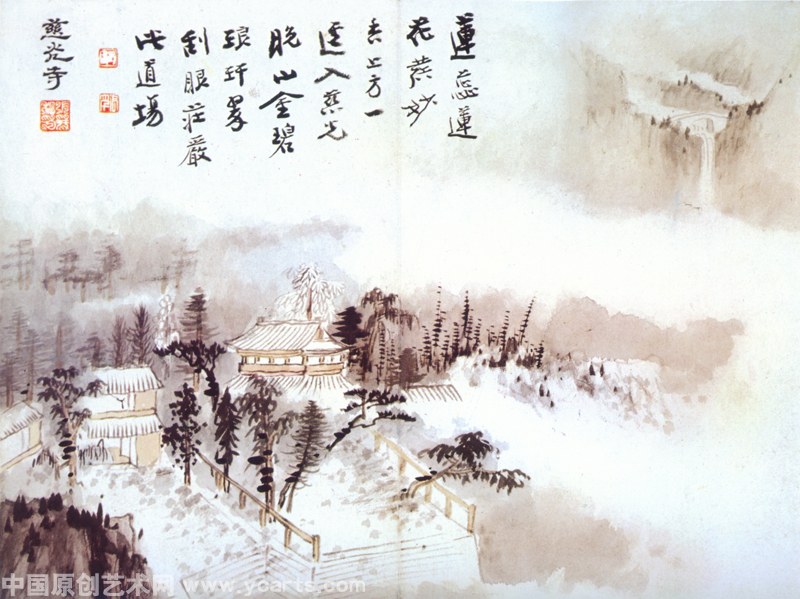 蓮蕊蓮
花發妙
香上方一
逕入慈光
晚山金碧
琅玕翠
刮眼莊嚴
此道場
慈光寺
中国原创艺术网 www.ycarts.com